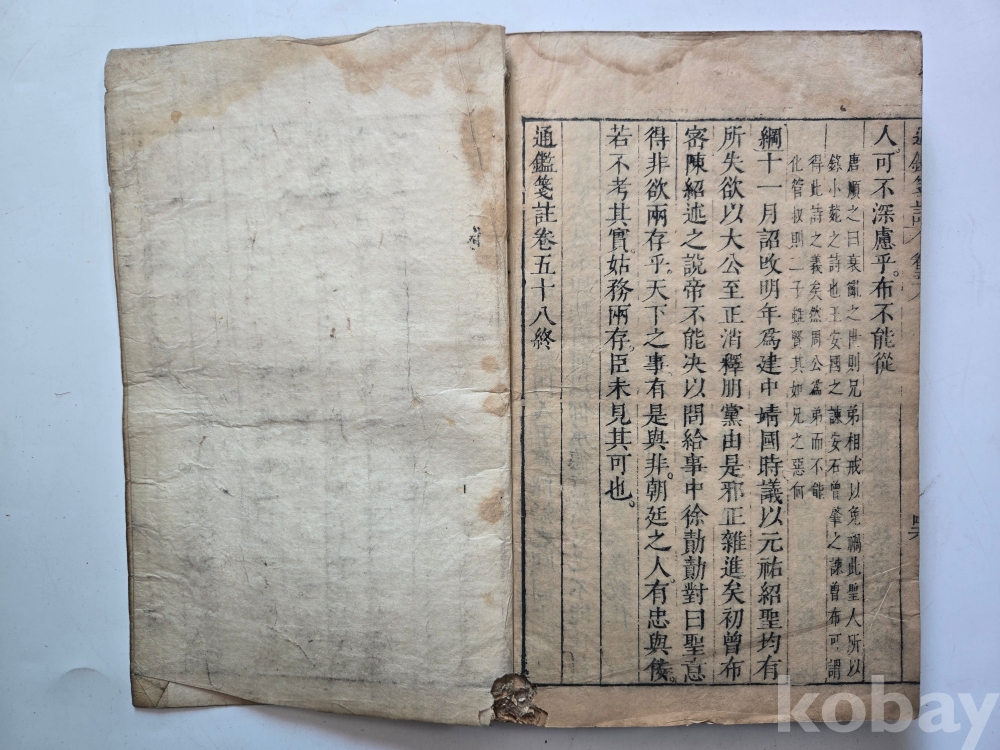 通鑑箋註 卷五十八
人可不深慮乎。布不能從
唐順之曰衰亂之世則兄弟相戒以免禍此聖人所以
錄小菀之詩也王安國之諫安石曾肇之諫曾布可謂
得此詩之義矣然周公爲弟而不能
化管叔則二子雖賢其如兄之惡何
綱十一月詔改明年爲建中靖國時議以元祐紹聖均有
所失欲以大公至正消釋朋黨由是邪正雜進矣初曾布
密陳紹述之說帝不能決以問給事中徐勣勣對曰聖意
得非欲兩存乎。天下之事。有是與非。朝廷之人。有忠與佞。
若不考其實。姑務兩存。臣未見其可也。
通鑑箋註卷五十八終
kobay